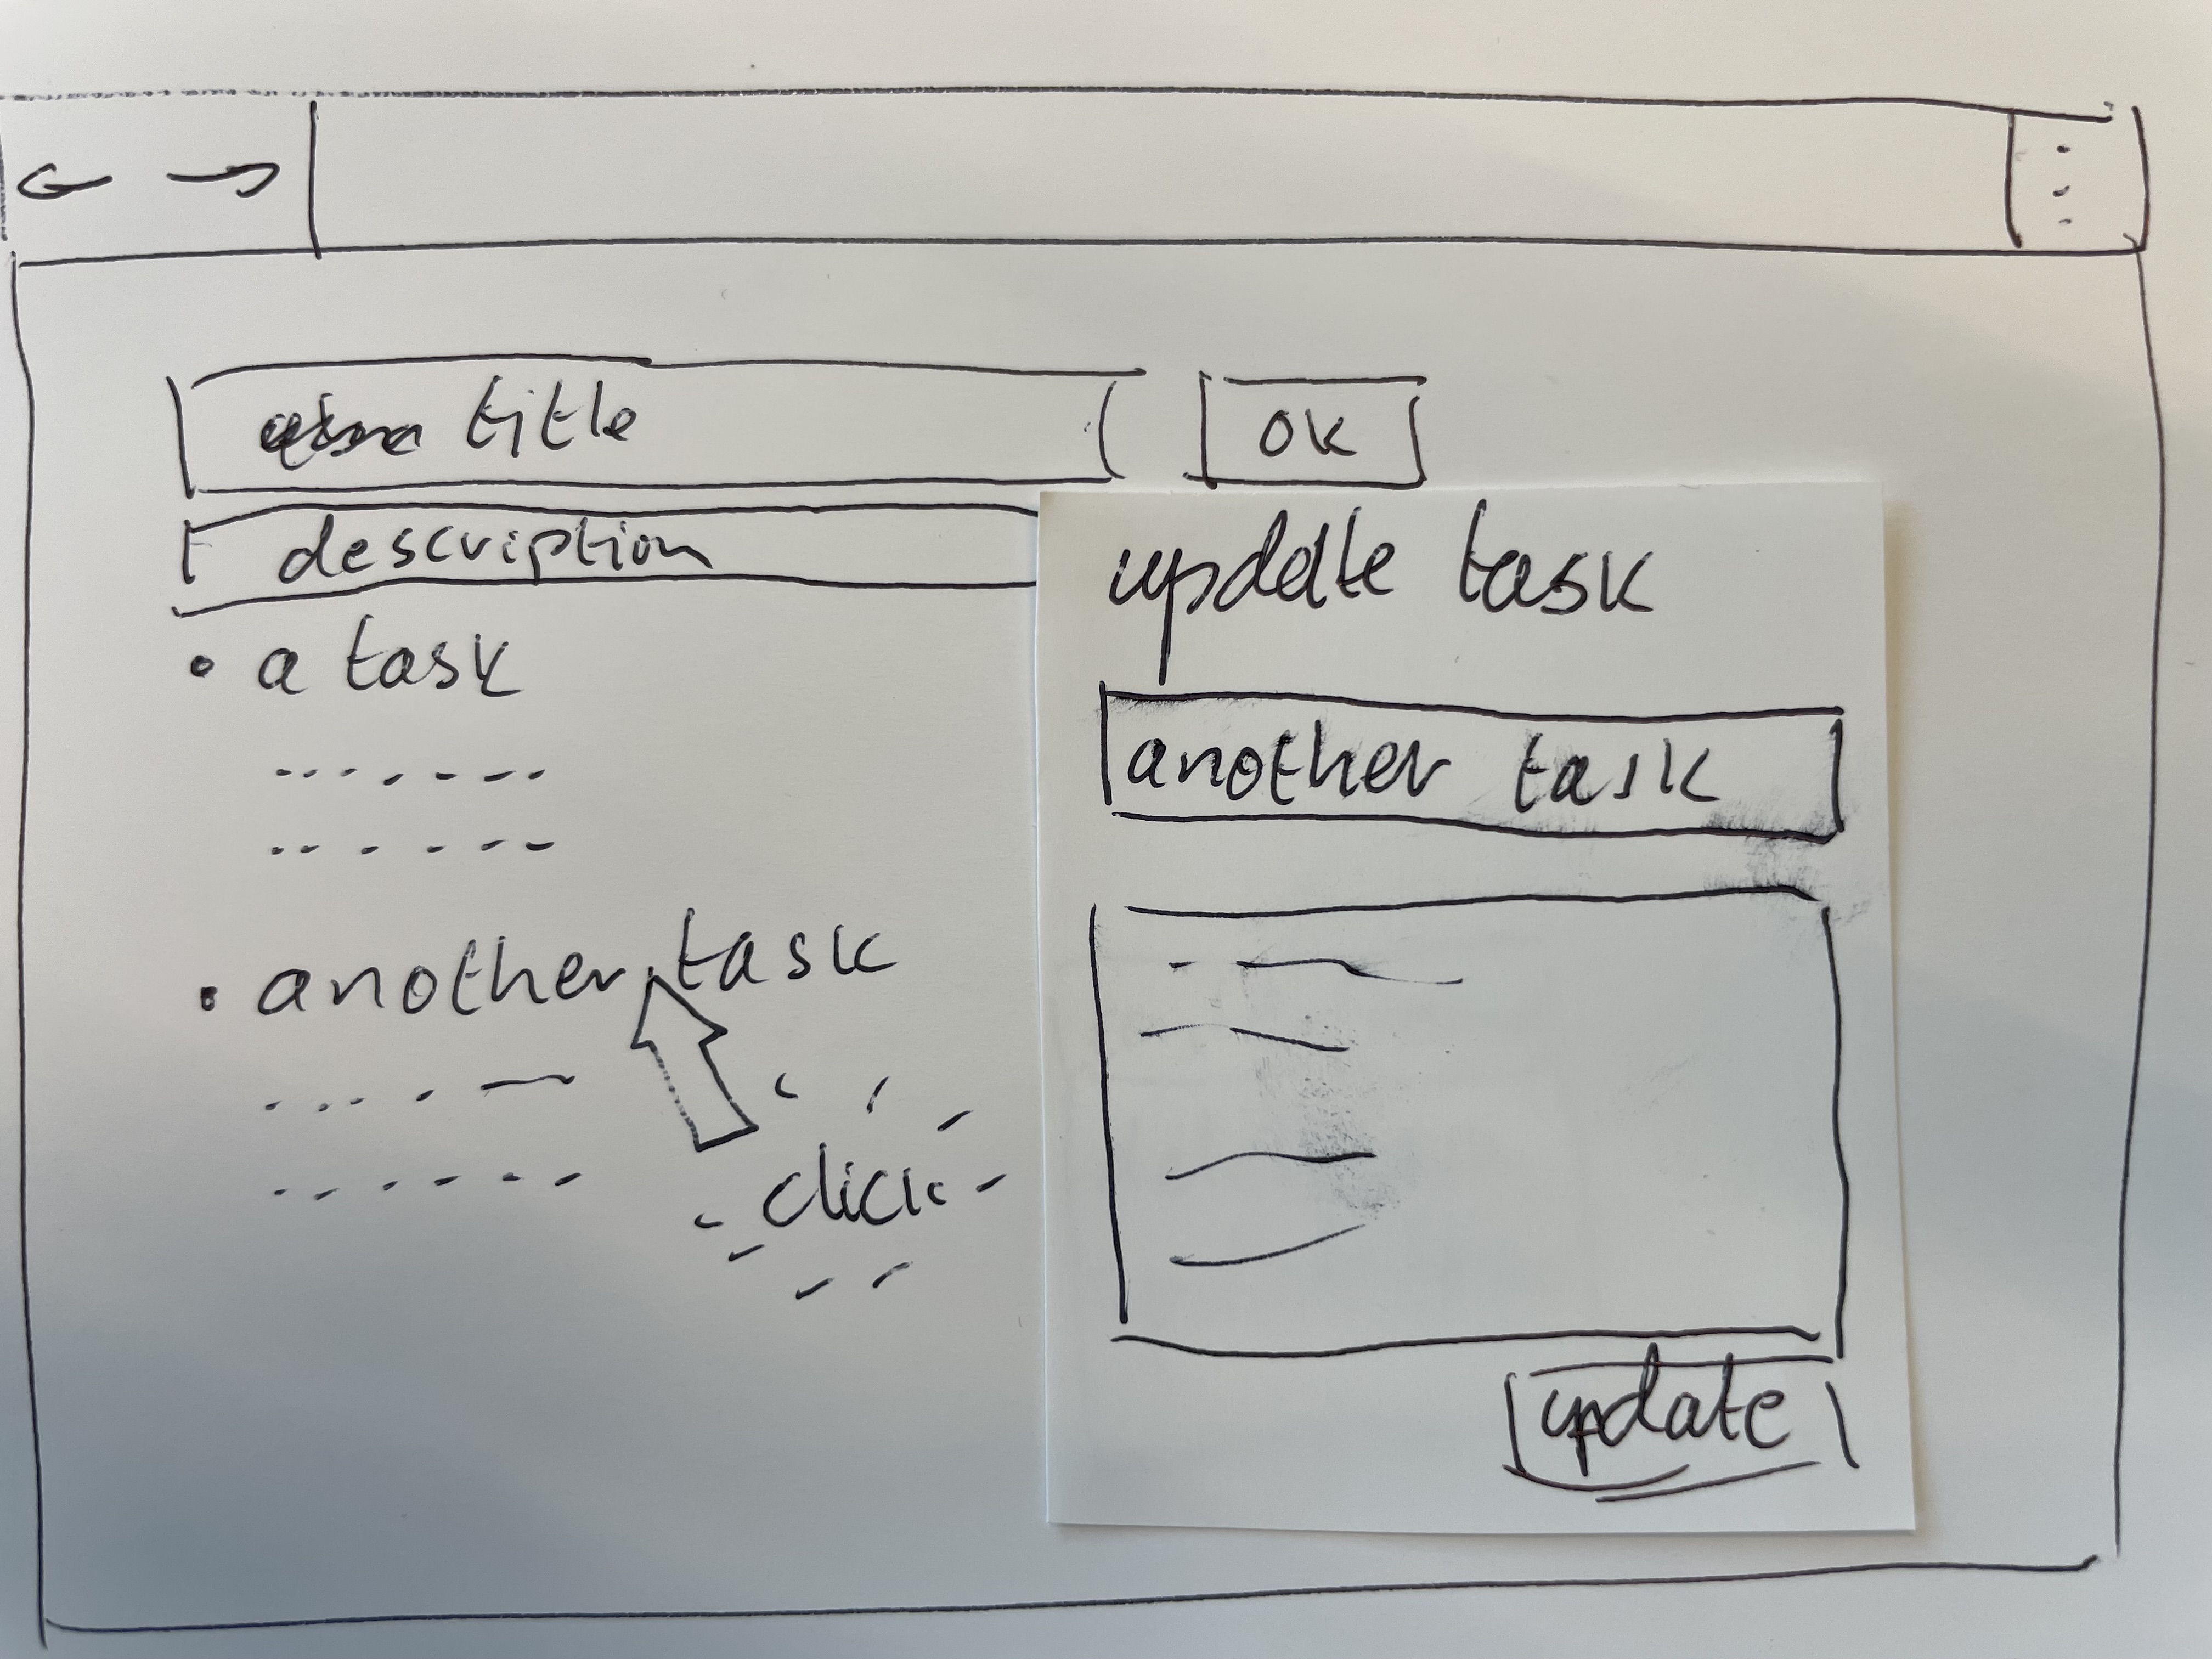 title
ok
description
• a task
• another task
click
update task
another task
update